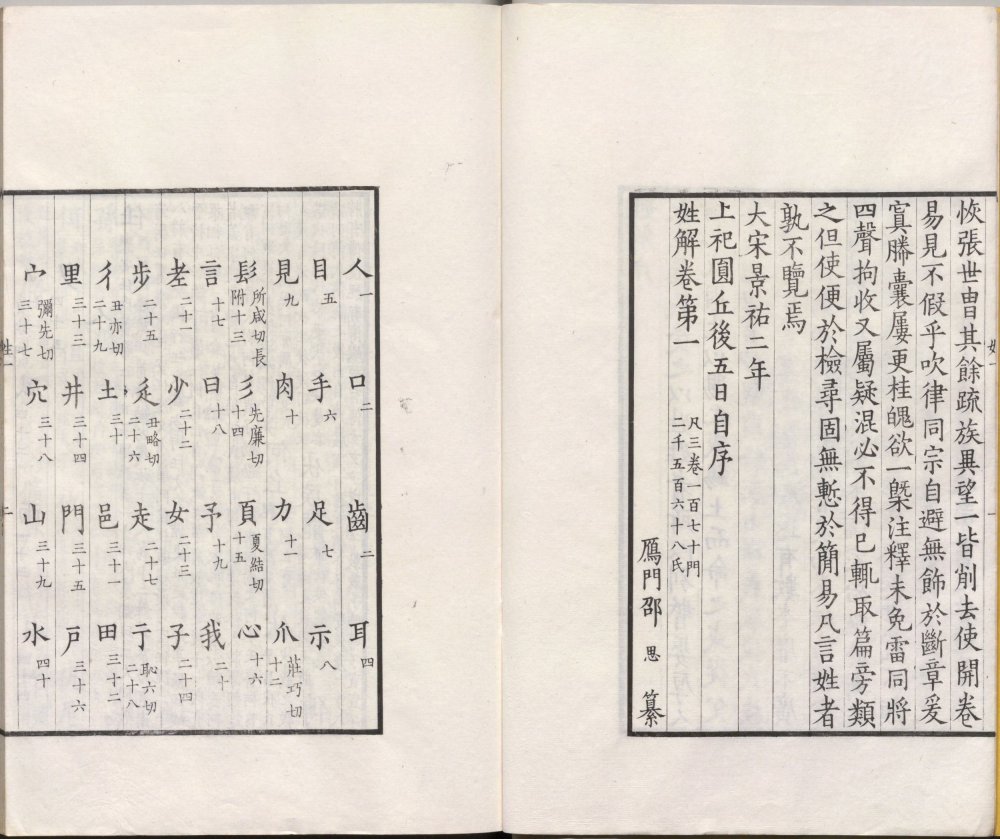 恢張世胄其餘疏族異望一皆削去使開卷
易見不假乎吹律同宗自避無飾於斷章爰
寘縢囊屢更桂魄欲一槩注釋未免雷同將
四聲拘收又屬疑混必不得已輒取篇旁類
之但使便於檢尋固無慙於簡易凡言姓者
孰不覽焉
大宋景祐二年
上祀圓丘後五日自序
姓解卷第一 凡三卷一百七十門二千五百六十八氏
鴈門邵 思 纂
人一 口二 齒三 耳四
目五 手六 足七 示八
見九 肉十 力十一 爪莊巧切十二
髟所咸切長附十三 彡先廉切十四 頁夏結切十五 心十六
言十七 曰十八 予十九 我二十
老二十一 少二十二 女二十三 子二十四
步二十五 辵丑略切二十六 走二十七 亍恥六切二十八
彳丑亦切二十九 土三十 邑三十一 田三十二
里三十三 井三十四 門三十五 戶三十六
宀彌先切三十七 穴三十八 山三十九 水四十
姓一